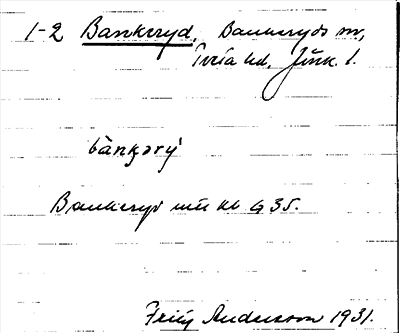 1-2 Bankeryd, Bankeryds sn,
Tveta hd, Jönk. l.
bàŋkərý
Bankeryd
Fritz Andersson 1931.